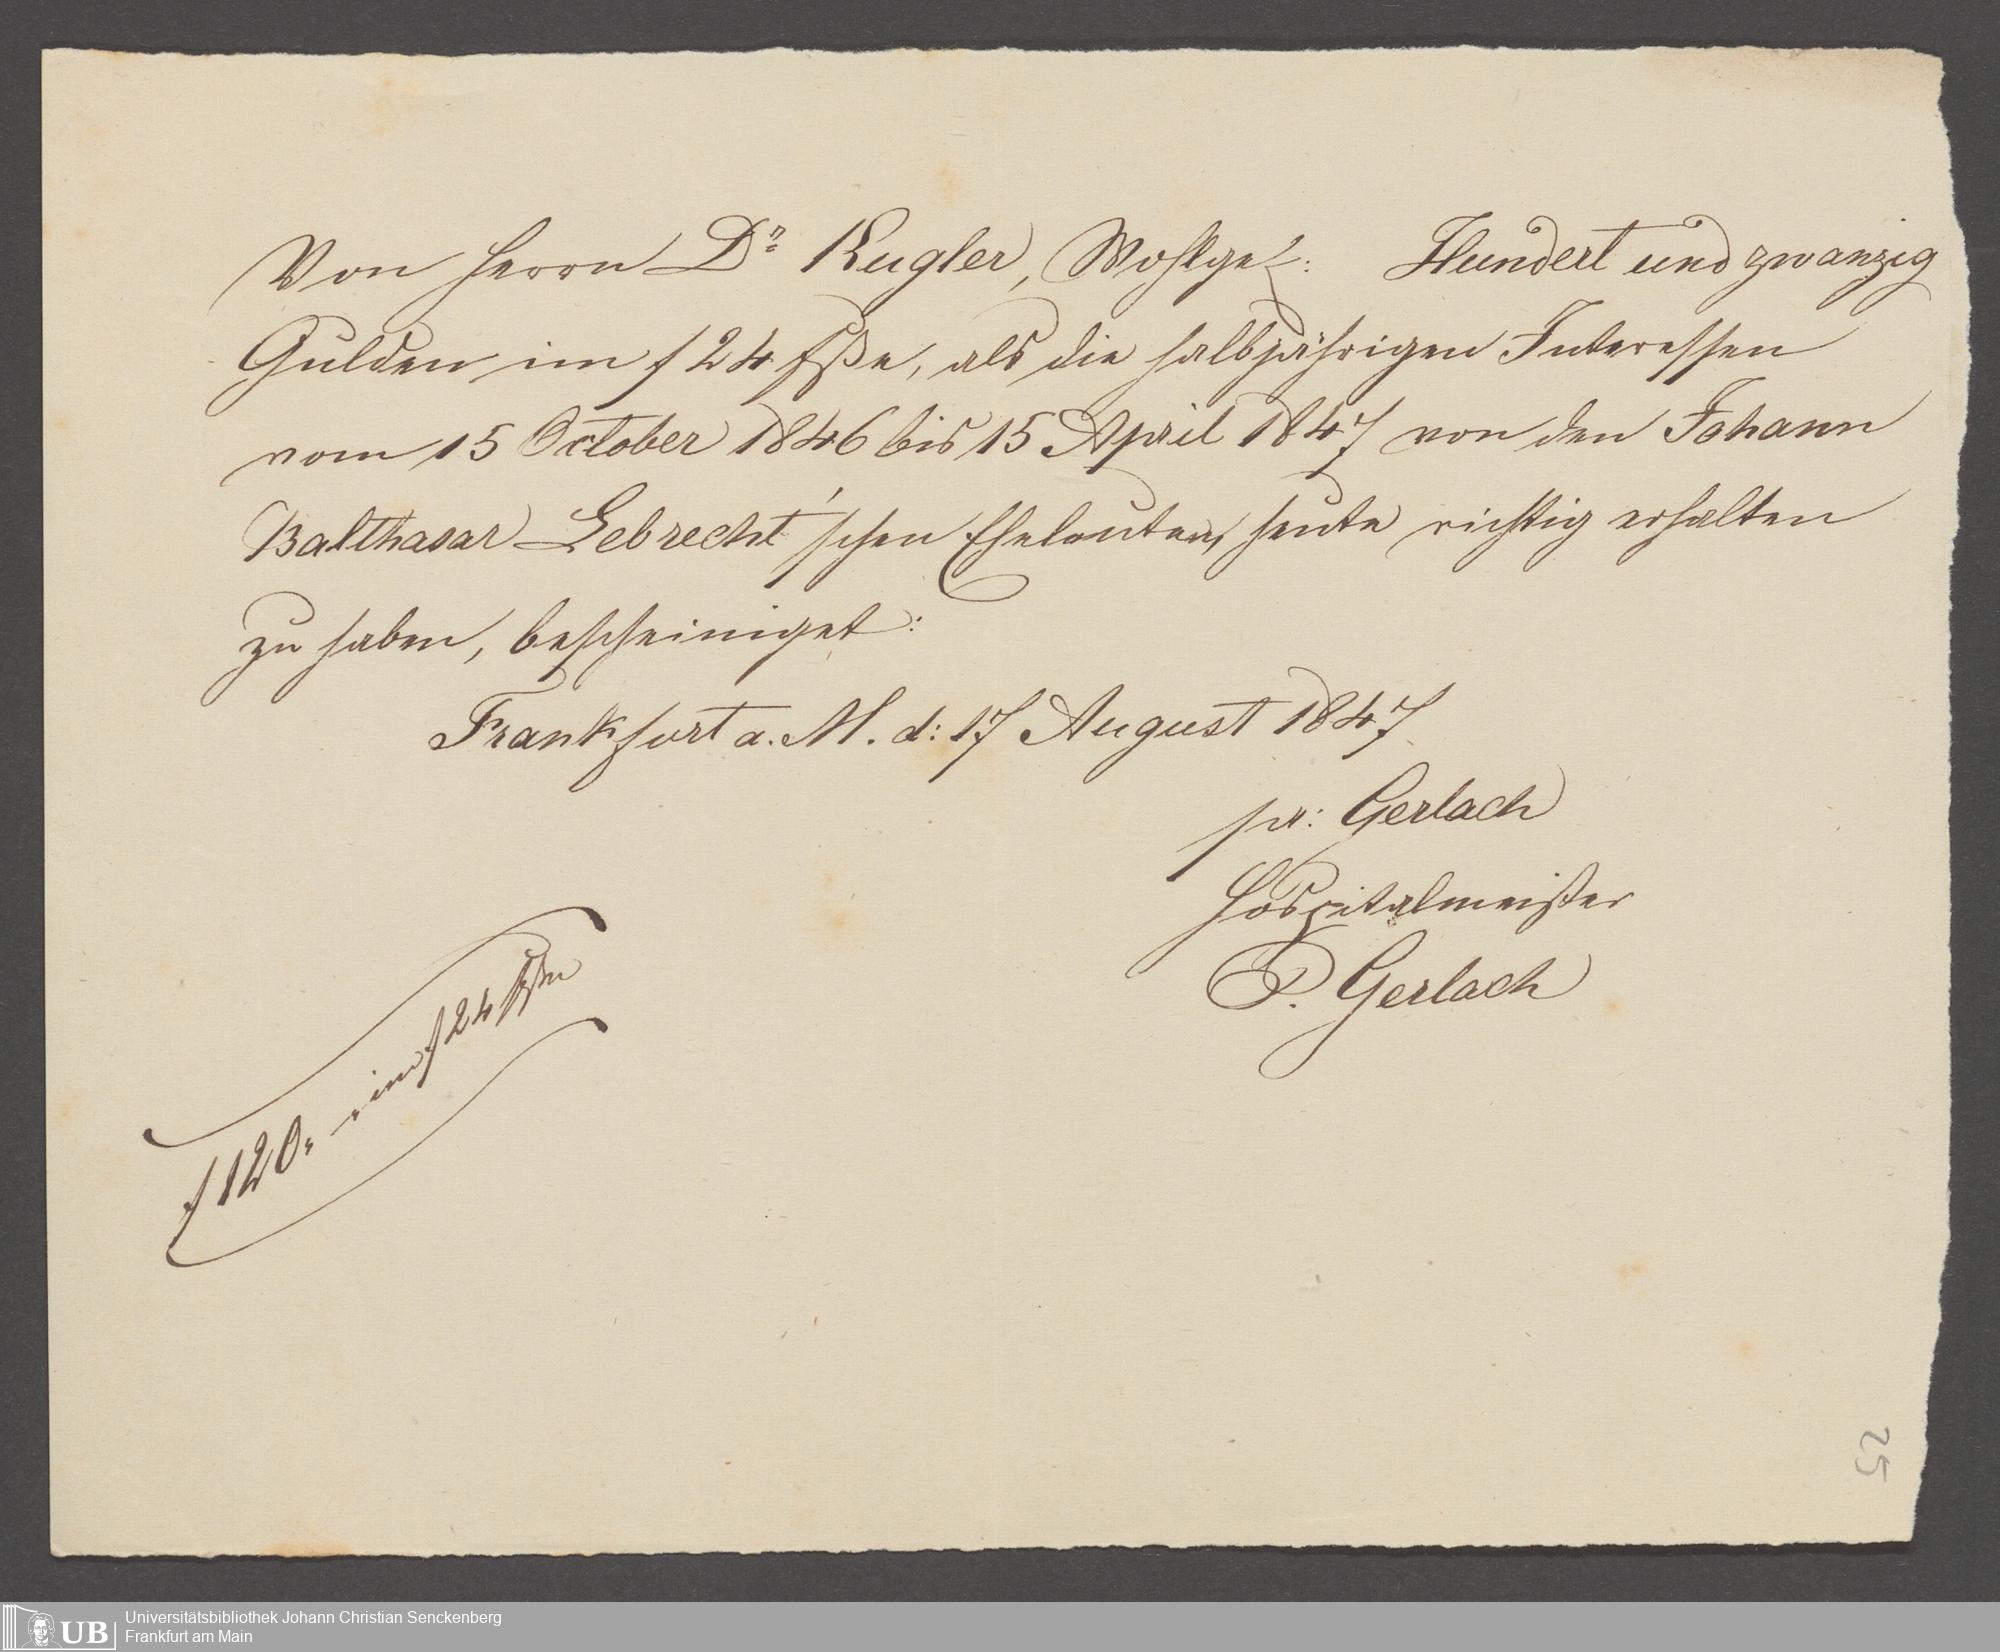 Von Herrn Dr Kugler, Wohlgeb: Hundert und zwanzig
Gulden im f 24 Fße, als die halbjährigen Interessen
vom 15 October 1846 bis 15 April 1847 von den Johann
Balthasar Lebrecht'schen Eheleuten, heute richtig erhalten
zu haben, bescheiniget:
Frankfurt a. M. d: 17 August 1847
pr: Gerlach
Hospitalmeister
P. Gerlach
f 120,, – im f 24 Fße
25
UB Universitätsbibliothek Johann Christian Senckenberg
Frankfurt am Main